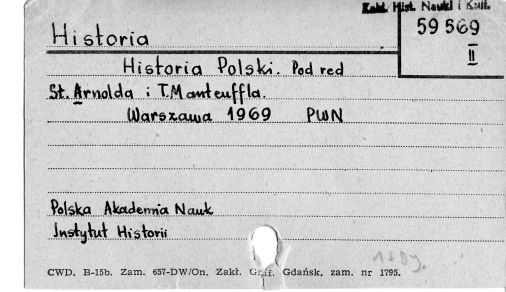 Zakł. Hist. Nauki i Kult.
59 569
II
Historia
Historia Polski. Pod red
St. Arnolda i T. Manteuffla.
Warszawa 1969 PWN
Polska Akademia Nauk
Instytut Historii
CWD. B-15b. Zam. 657-DW/On. Zakł. Graf. Gdańsk, zam. nr 1795.